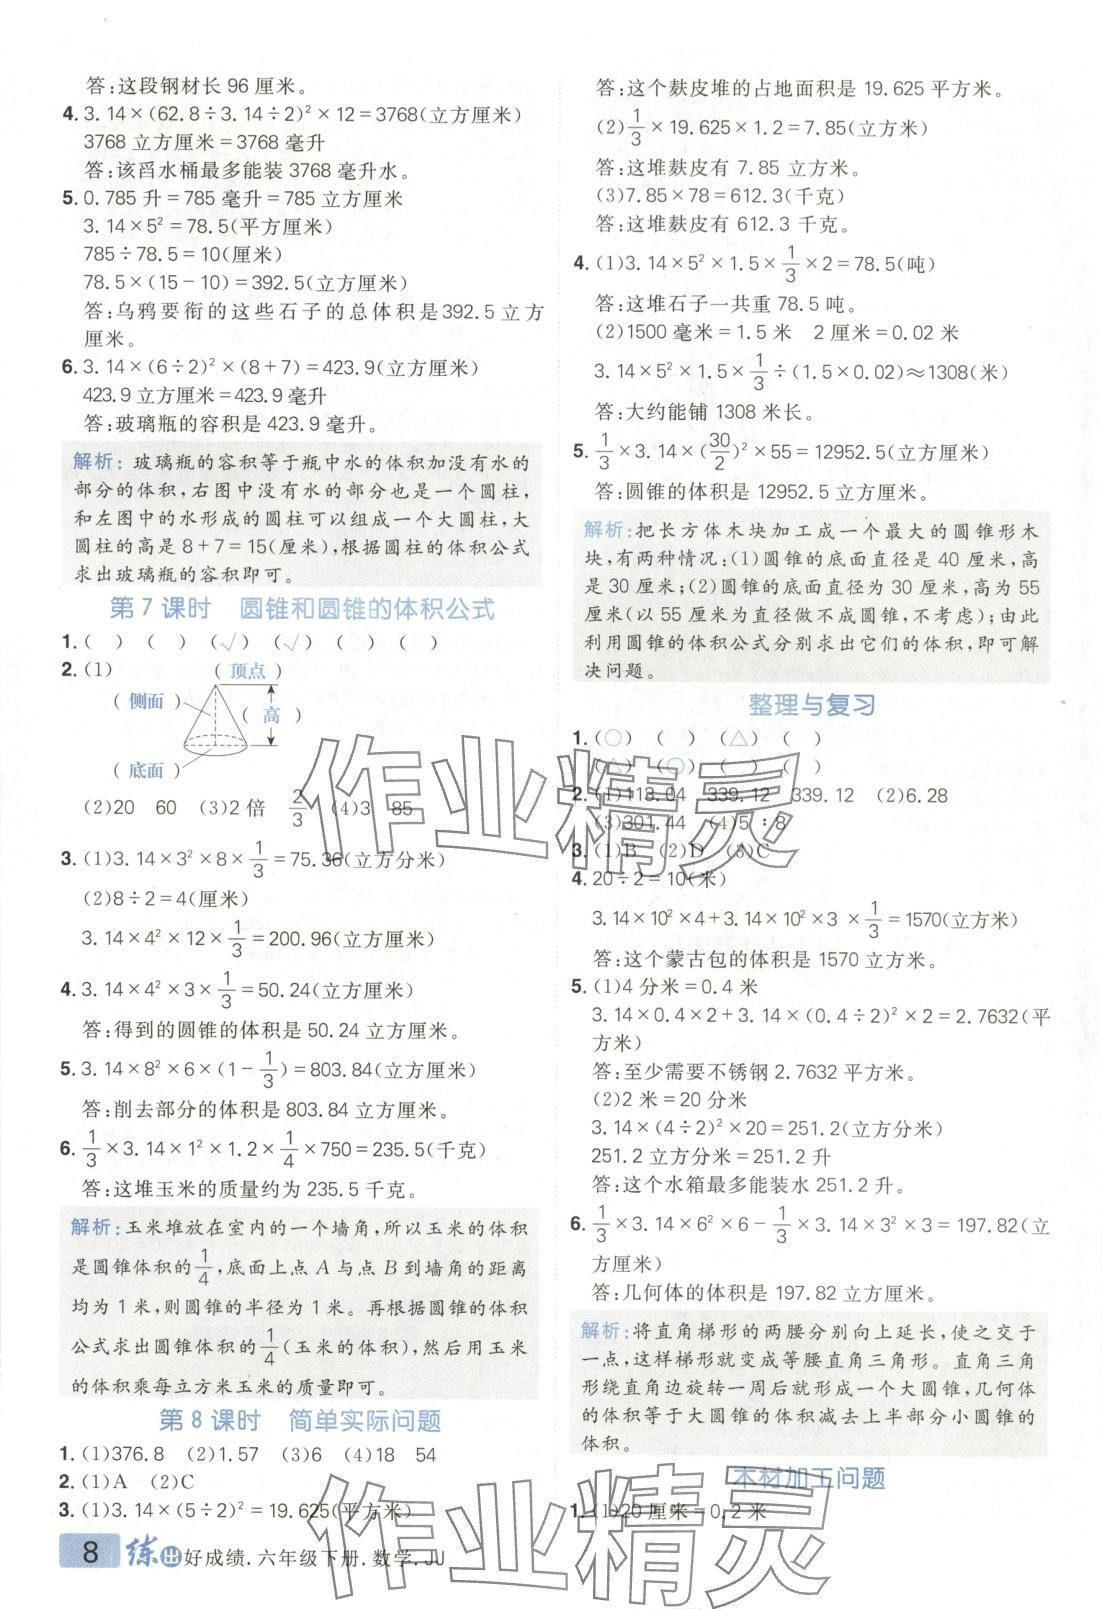 答:这段钢材长 96 厘米。
4. 3.14×(62.8÷3.14÷2)²×12=3768(立方厘米)
3768 立方厘米=3768 毫升
答:该舀水桶最多能装 3768 毫升水。
5. 0.785 升=785 毫升=785 立方厘米
3.14×5²=78.5(平方厘米)
785÷78.5=10(厘米)
78.5×(15-10)=392.5(立方厘米)
答:乌鸦要衔的这些石子的总体积是392.5 立方
厘米。
6. 3.14×(6÷2)²×(8+7)=423.9(立方厘米)
423.9 立方厘米=423.9 毫升
答:玻璃瓶的容积是 423.9 毫升。
解析:玻璃瓶的容积等于瓶中水的体积加没有水的
部分的体积,右图中没有水的部分也是一个圆柱,
和左图中的水形成的圆柱可以组成一个大圆柱,大
圆柱的高是 8+7=15(厘米),根据圆柱的体积公式
求出玻璃瓶的容积即可。
第 7 课时 圆锥和圆锥的体积公式
1. ( ) ( ) (√) (√) ( ) ( )
2. (1)
(顶点)
(侧面)
(高)
(底面)
(2)20 60 (3)2 倍 2/3 (4)3 85
3. (1)3.14×3²×8×1/3=75.36(立方分米)
(2)8÷2=4(厘米)
3.14×4²×12×1/3=200.96(立方厘米)
4. 3.14×4²×3×1/3=50.24(立方厘米)
答:得到的圆锥的体积是 50.24 立方厘米。
5. 3.14×8²×6×(1-1/3)=803.84(立方厘米)
答:削去部分的体积是 803.84 立方厘米。
6. 1/3×3.14×1²×1.2×1/4×750=235.5(千克)
答:这堆玉米的质量约为 235.5 千克。
解析:玉米堆放在室内的一个墙角,所以玉米的体积
是圆锥体积的1/4,底面上点 A 与点 B 到墙角的距离
均为 1 米,则圆锥的半径为 1 米。再根据圆锥的体积
公式求出圆锥体积的1/4(玉米的体积),然后用玉米
的体积乘每立方米玉米的质量即可。
第 8 课时 简单实际问题
1. (1)376.8 (2)1.57 (3)6 (4)18 54
2. (1)A (2)C
3. (1)3.14×(5÷2)²=19.625(平方米)
8 练出好成绩.六年级下册.数学.JJ
答:这个麸皮堆的占地面积是 19.625 平方米。
(2)1/3×19.625×1.2=7.85(立方米)
答:这堆麸皮有 7.85 立方米。
(3)7.85×78=612.3(千克)
答:这堆麸皮有 612.3 千克。
4. (1)3.14×5²×1.5×1/3×2=78.5(吨)
答:这堆石子一共重 78.5 吨。
(2)1500 毫米=1.5 米 2 厘米=0.02 米
3.14×5²×1.5×1/3÷(1.5×0.02)≈1308(米)
答:大约能铺 1308 米长。
5. 1/3×3.14×(30/2)²×55=12952.5(立方厘米)
答:圆锥的体积是 12952.5 立方厘米。
解析:把长方体木块加工成一个最大的圆锥形木
块,有两种情况:(1)圆锥的底面直径是 40 厘米,高
是 30 厘米;(2)圆锥的底面直径为 30 厘米,高为 55
厘米(以 55 厘米为直径做不成圆锥,不考虑);由此
利用圆锥的体积公式分别求出它们的体积,即可解
决问题。
整理与复习
1. (○) ( ) (△) ( )
(△) (○) ( ) ( )
2. (1)113.04 339.12 339.12 (2)6.28
(3)301.44 (4)5∶8
3. (1)B (2)D (3)C
4. 20÷2=10(米)
3.14×10²×4+3.14×10²×3×1/3=1570(立方米)
答:这个蒙古包的体积是 1570 立方米。
5. (1)4 分米=0.4 米
3.14×0.4×2+3.14×(0.4÷2)²×2=2.7632(平
方米)
答:至少需要不锈钢 2.7632 平方米。
(2)2 米=20 分米
3.14×(4÷2)²×20=251.2(立方分米)
251.2 立方分米=251.2 升
答:这个水箱最多能装水 251.2 升。
6. 1/3×3.14×6²×6-1/3×3.14×3²×3=197.82(立
方厘米)
答:几何体的体积是 197.82 立方厘米。
解析:将直角梯形的两腰分别向上延长,使之交于
一点,这样梯形就变成等腰直角三角形。直角三角
形绕直角边旋转一周后就形成一个大圆锥,几何体
的体积等于大圆锥的体积减去上半部分小圆锥的
体积。
木材加工问题
1. (1)20 厘米=0.2 米
作业精灵
作业精灵